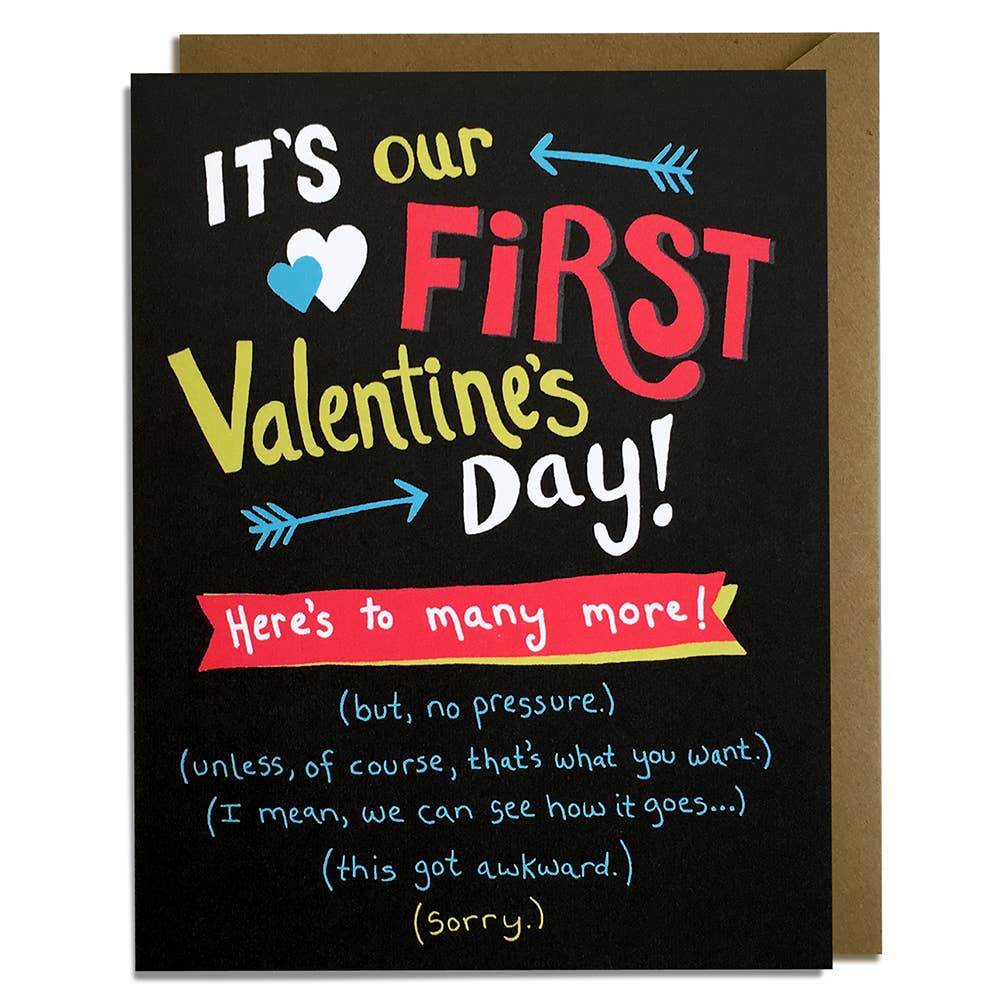 IT'S our
FiRST
Valentine's
Day!
Here's to many more!
(but, no pressure.)
(unless, of course, that's what you want.)
(I mean, we can see how it goes...)
(this got awkward.)
(Sorry.)